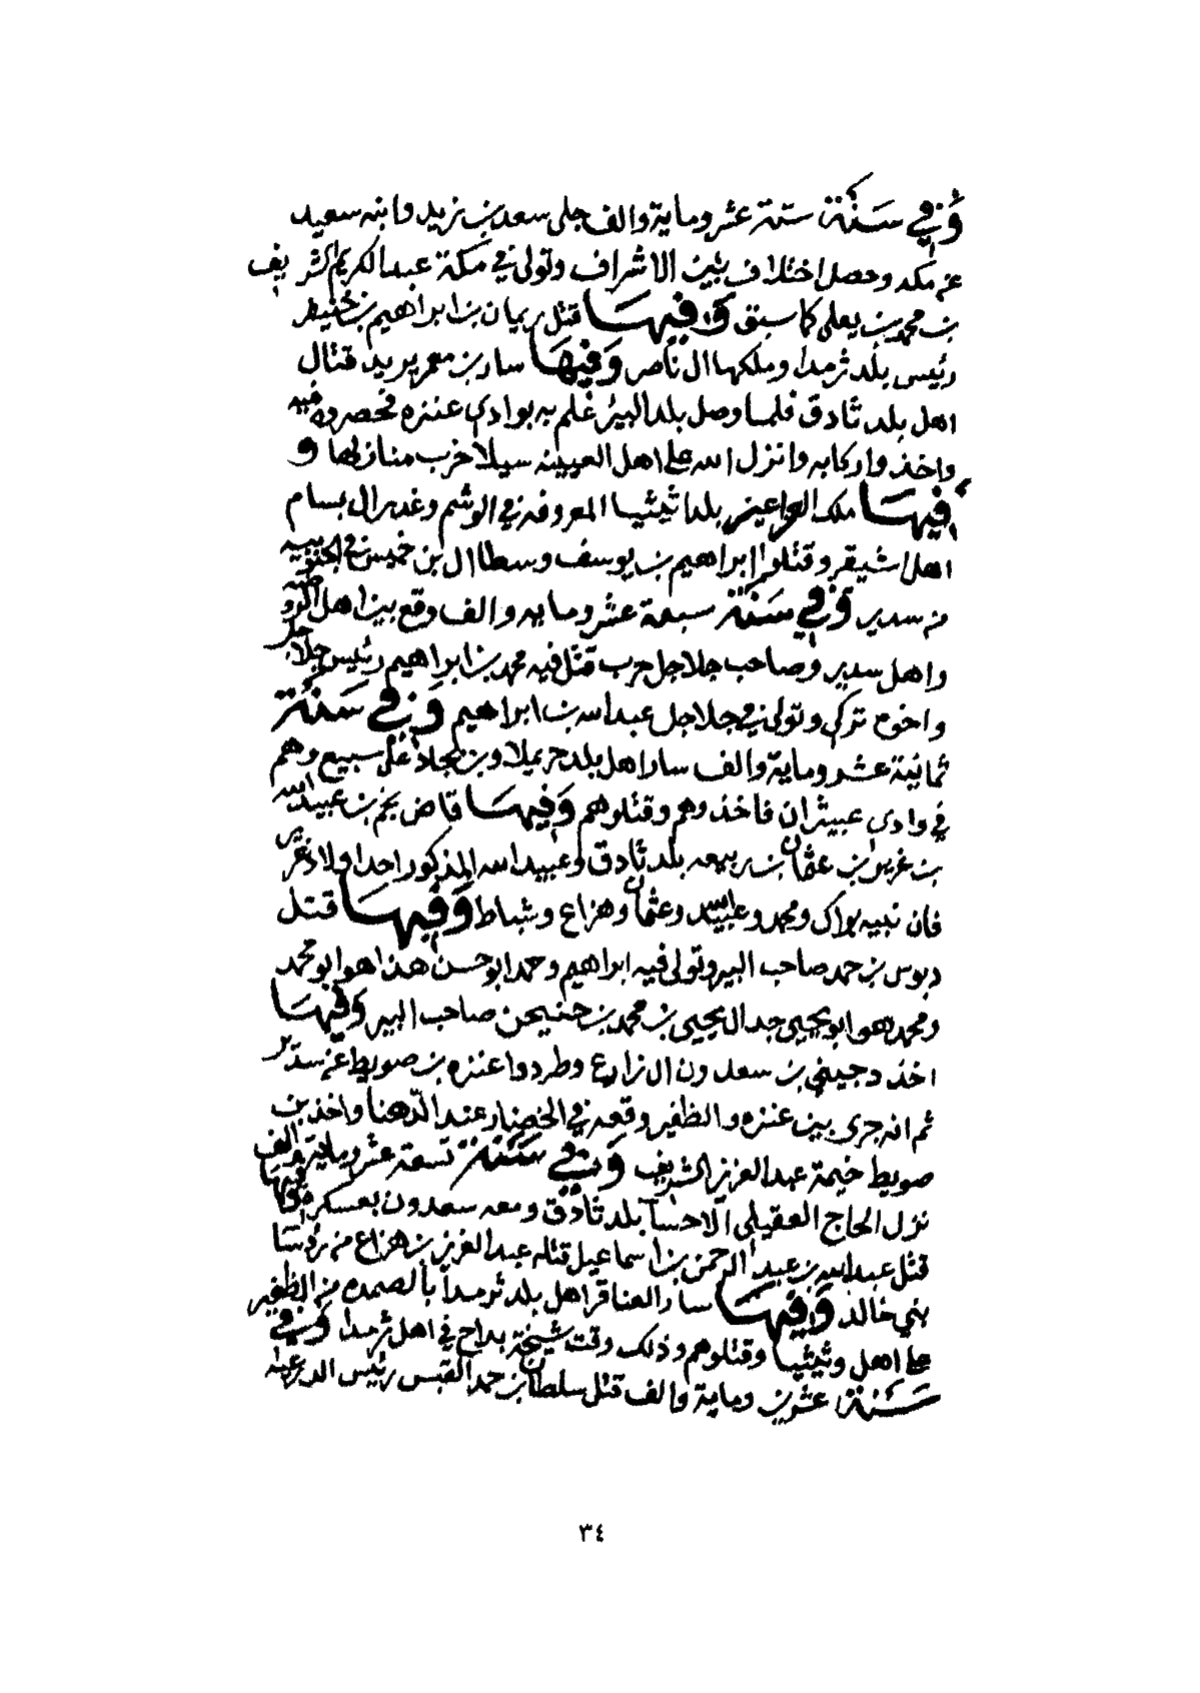 وفي سنة ستة عشر وماية والف جلى سعد بن زيد وابنه سعيد
عن مكه وحصل اختلاف بين الاشراف وتولى في مكة عبدالكريم الشريف
بن محمد بن يعلى كما سبق وفيها قتل ريمان بن ابراهيم بن خنيفر
رئيس بلد ثرمدا وملكها ال ناصر وفيها سار بن معمر يريد قتال
اهل بلد ثادق فلما وصل بلد البير علم به بوادي عنزه فحصروه فيه
واخذوا ركابه وانزل الله على اهل العيينه سيلا خرب منازلها و
فيها ملك العراعير بلد اثيثيا المعروفه في الوشم وغدر ال بسام
اهل اشيقر وقتلوا ابراهيم بن يوسف وسطا ال بن خميس في الجنوبيه
من سدير وفي سنة سبعة عشر ومايه والف وقع بين اهل الروضه
واهل سدير وصاحب جلاجل حرب قتل فيه محمد بن ابراهيم رئيس جلاجل
واخوه تركي وتولى في جلاجل عبدالله بن ابراهيم وفي سنة
ثمانية عشر وماية والف سار اهل بلد حريملا وبن بجاد على سبيع وهم
في وادي عبيثران فاخذوهم وقتلوهم وفيها قاض نجم بن عبيدالله
بن غرير بن عثمان بن ربيعه بلد ثادق وعبيد الله المذكور احد اولاد غرير
فان نبيه براك ومحمد وعبيدالله وعثمان وهزاع وشباط وفيها قتل
دبوس بن حمد صاحب البير وتولى فيه ابراهيم وحمد ابو حسن هذا هو ابو محمد
ومحمد هو ابو يحيى جد ال يحيى بن محمد بن حنيحن صاحب البير وفيها
اخذ دجيني بن سعدون ال زارع وطردوا عنزه بن صويط عن سدير
ثم انه جرى بين عنزه والظفير وقعه في الخضار عند الدهنا واخذ بن
صويط خيمة عبد العزيز الشريف وفي سنة تسعة عشر وماية والف
نزل الحاج العقيلي الاحسا بلد ثادق ومعه سعدون بعسكره وفيها
قتل عبدالله بن عبد الرحمن بن اسماعيل قتله عبد العزيز بن هزاع من رؤسا
بني خالد وفيها سار العناقر اهل بلد ثرمدا بالصمده من الظفير
على اهل وثيثيا وقتلوهم وذلك وقت شيخة بداح في اهل ثرمدا وفي
سنة عشرين وماية والف قتل سلطان بن حمد القبس رئيس الدرعيه
٣٤